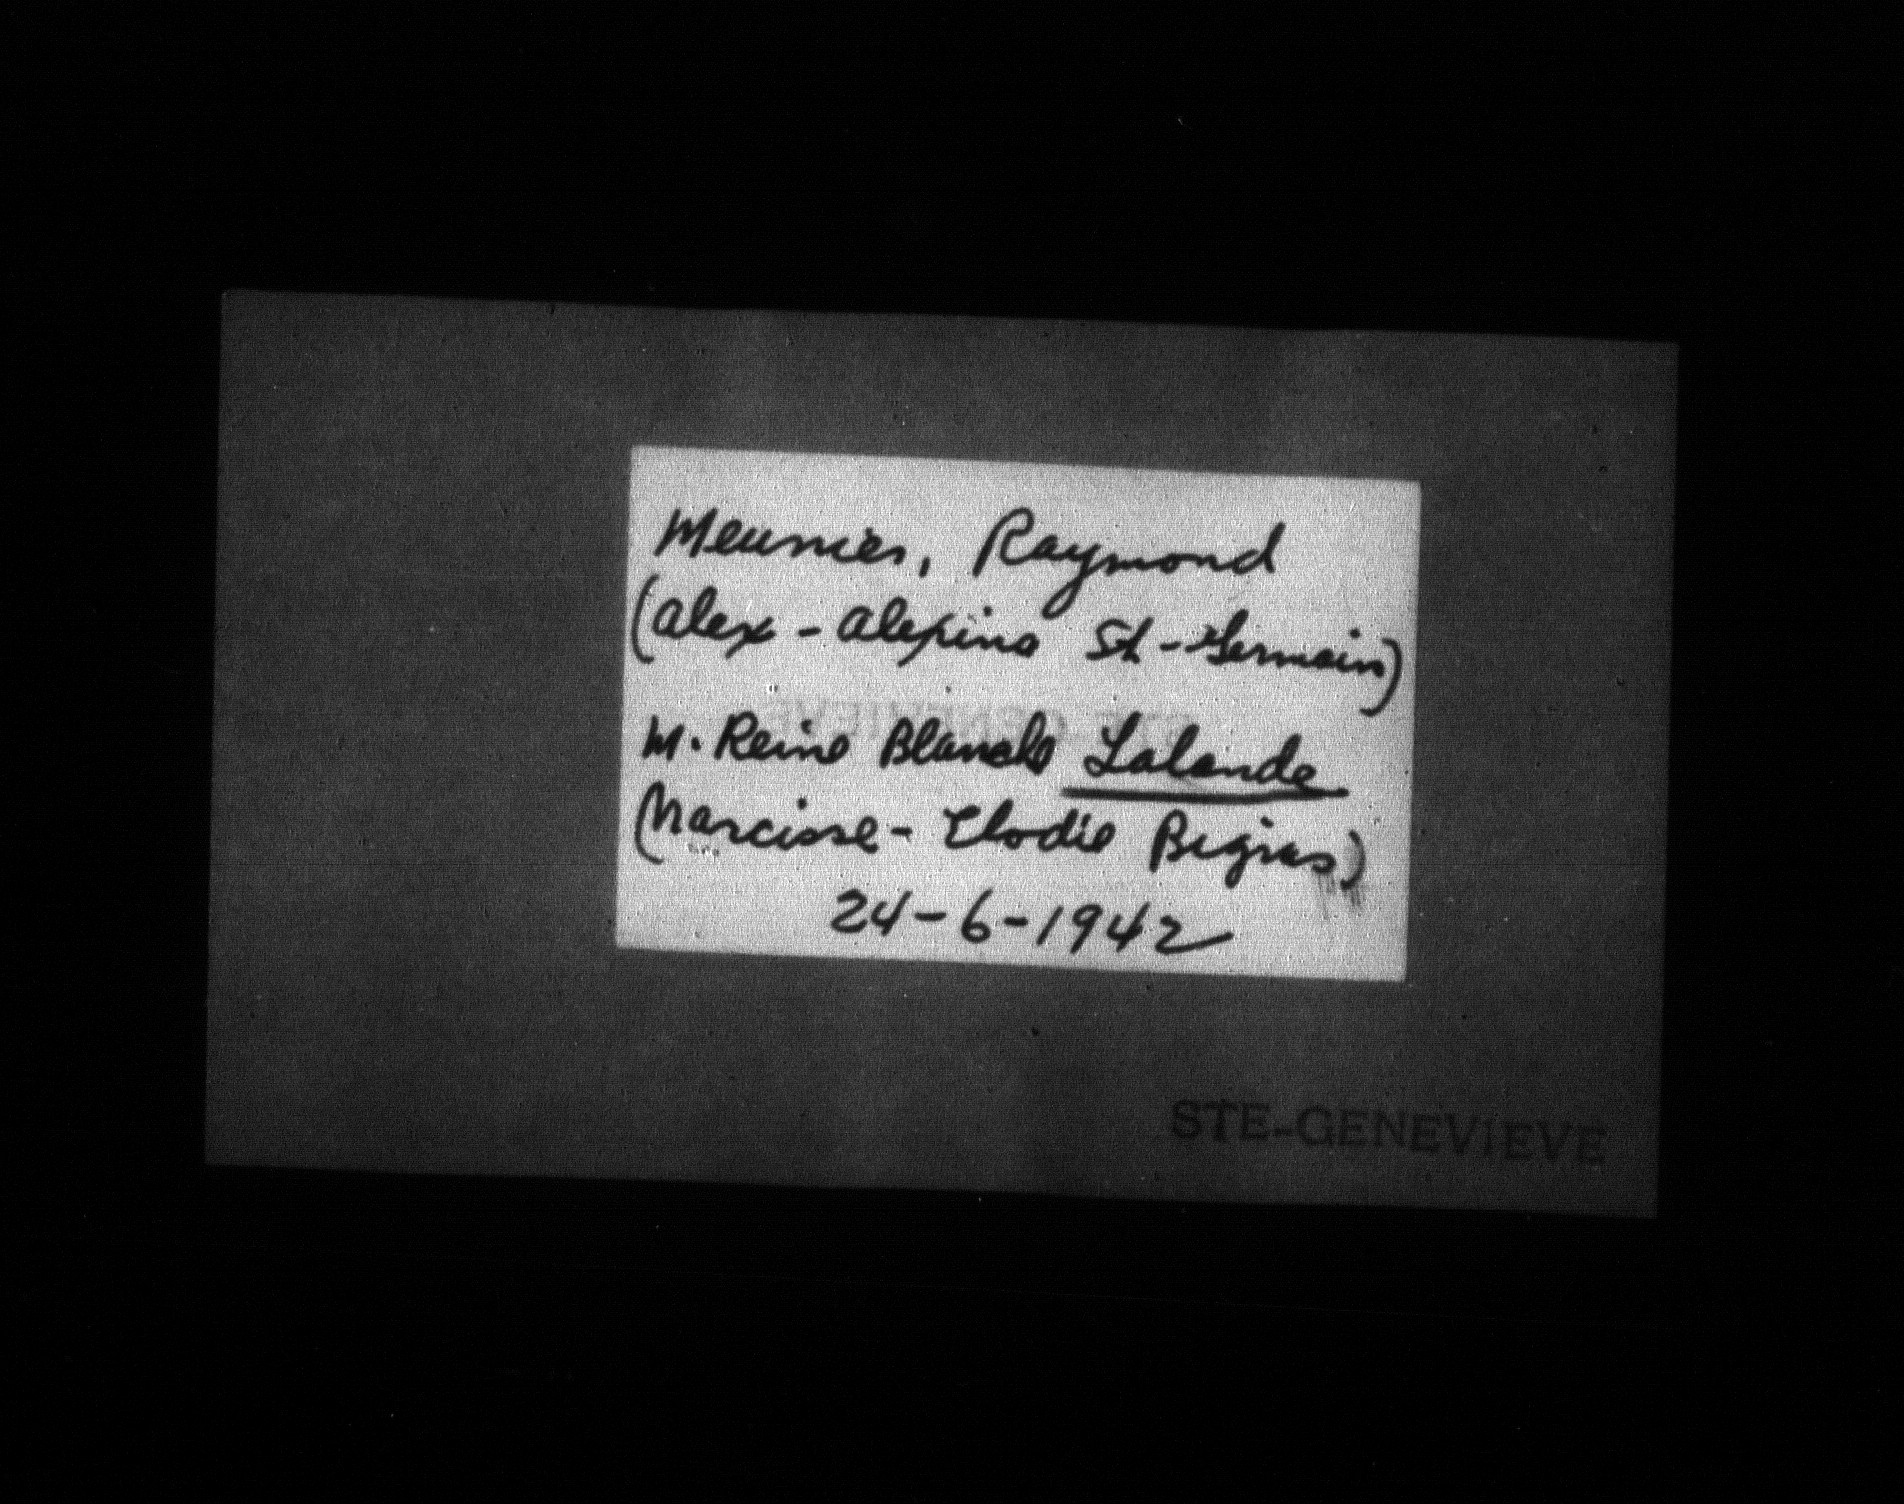 Meunier, Raymond
(Alex - Alexina St-Germain)
M. Reine Blanche Lalande
(Narcisse - Elodie Bigras)
24-6-1942
STE-GENEVIEVE